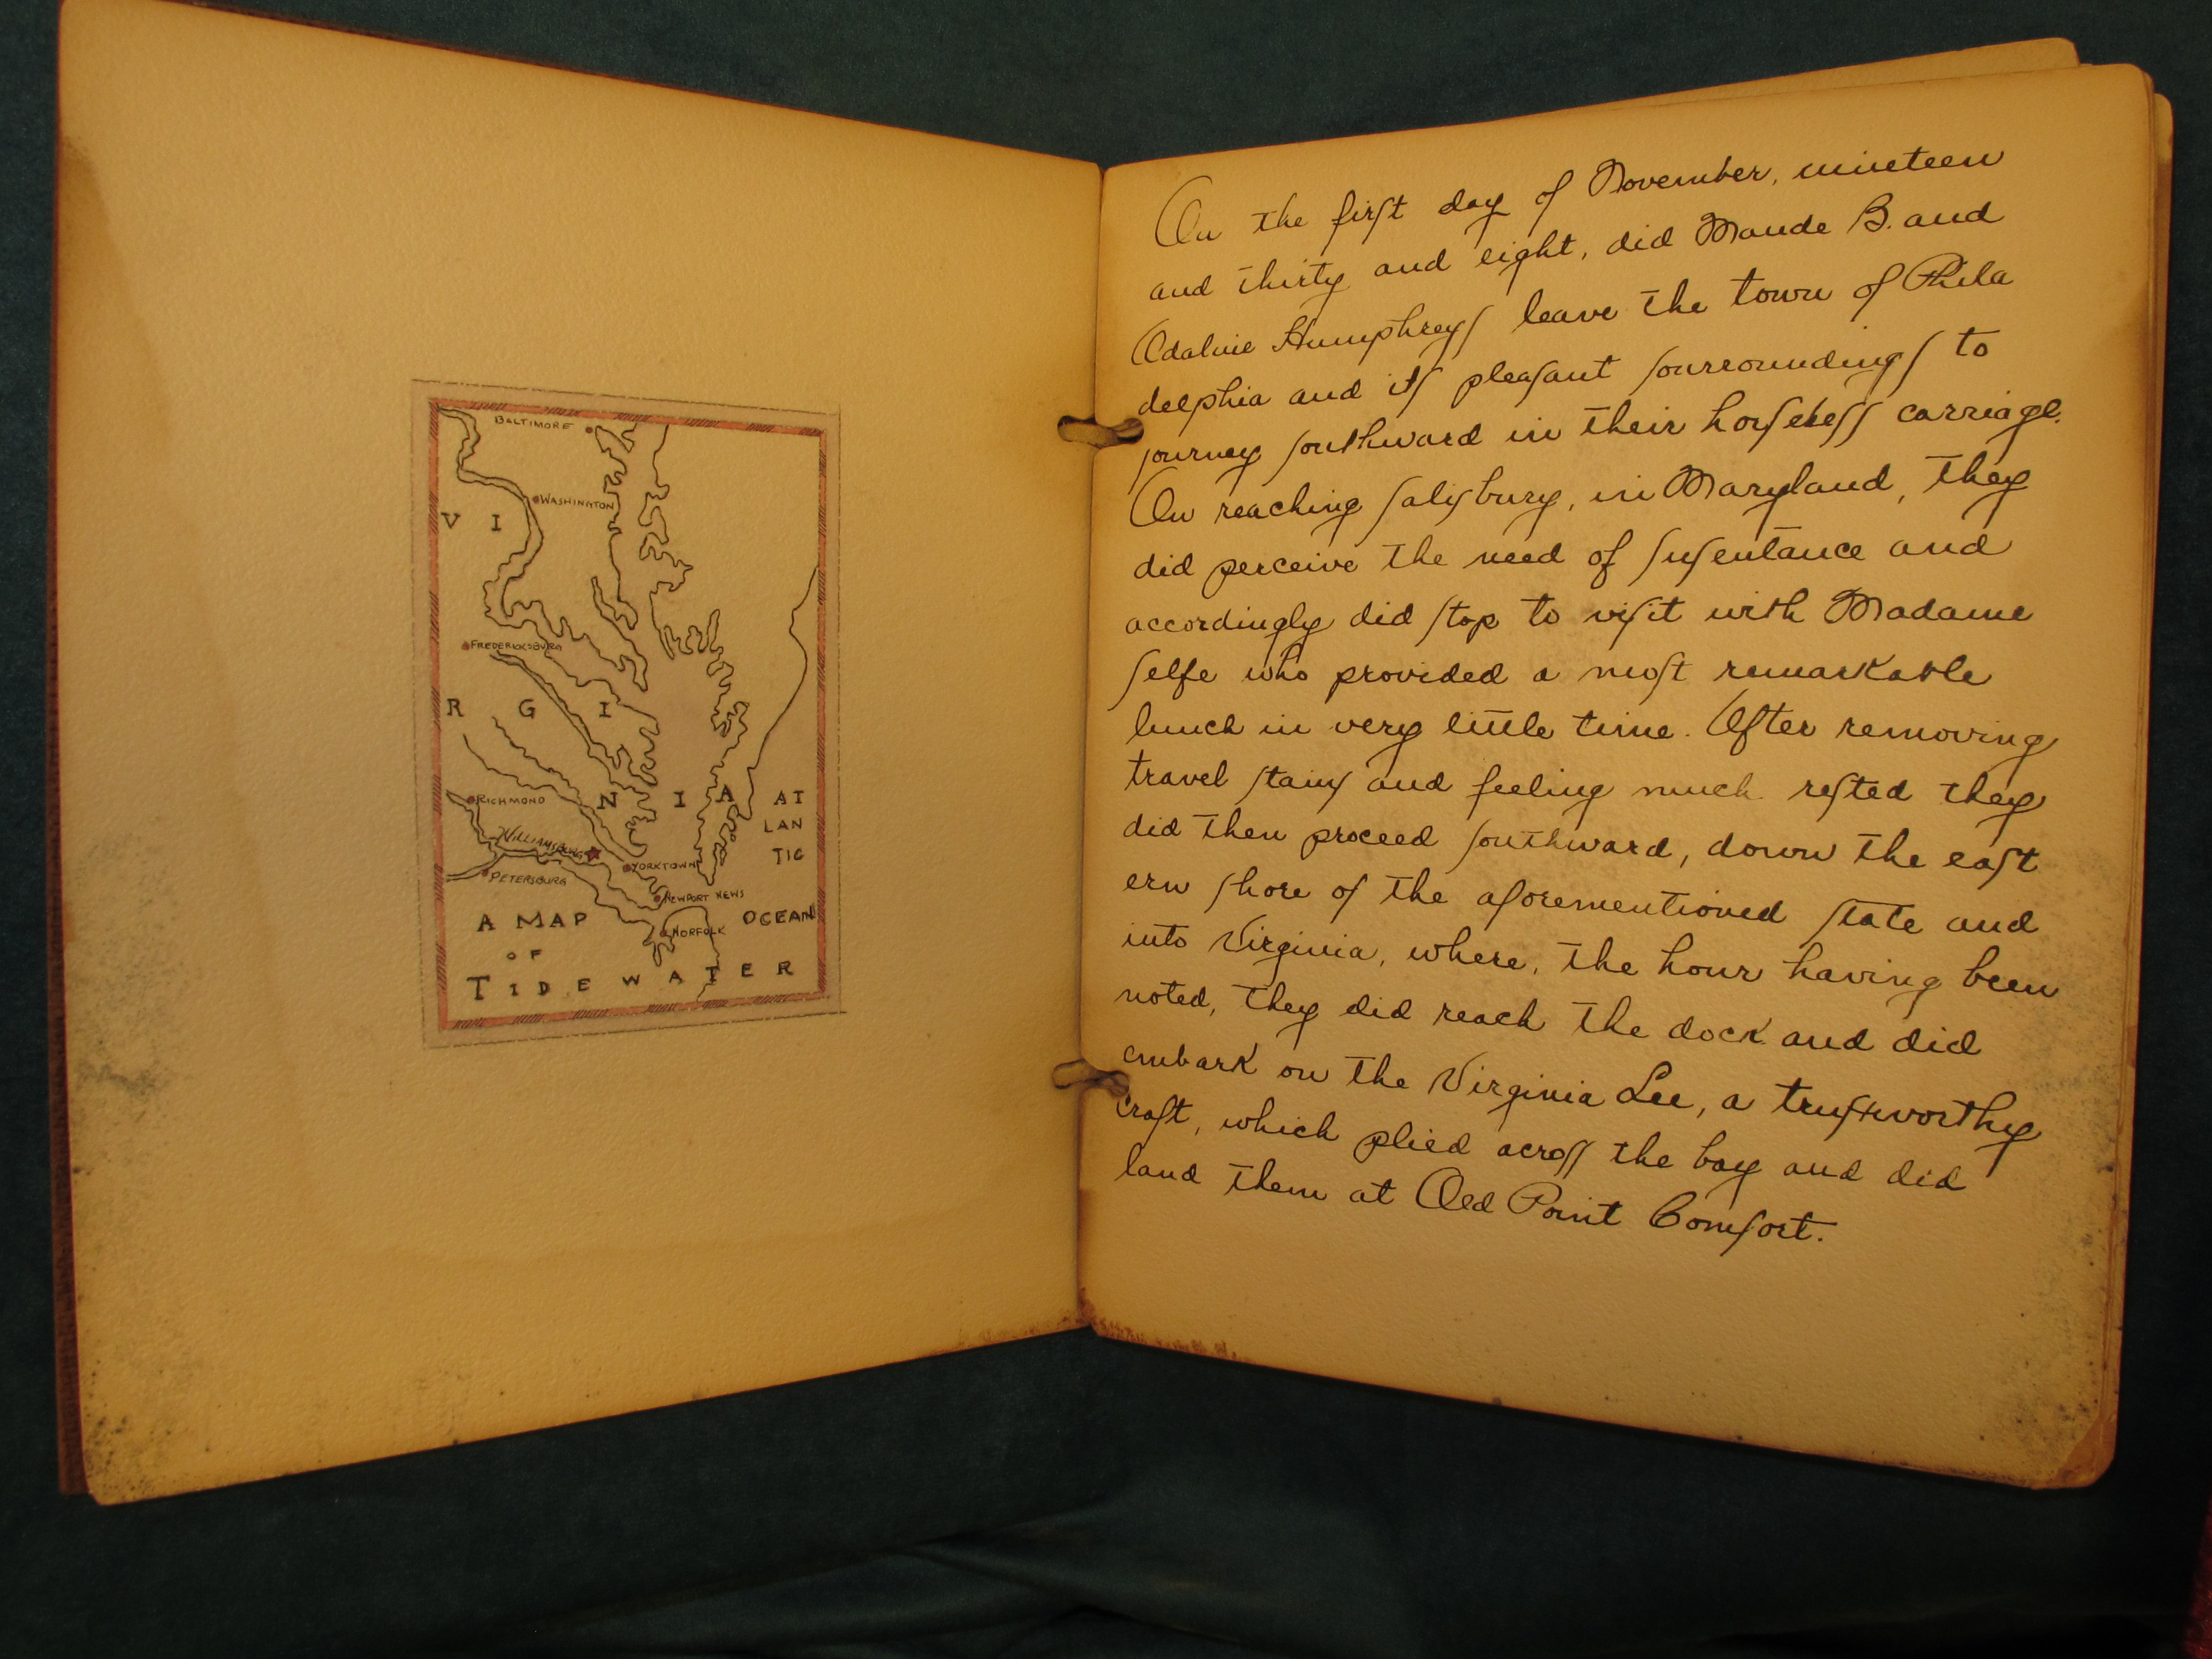 BALTIMORE
WASHINGTON
V I
FREDERICKSBURG
R G I
N I A
RICHMOND
WILLIAMSBURG
YORKTOWN
PETERSBURG
NEWPORT NEWS
NORFOLK
AT
LAN
TIC
OCEAN
A MAP
OF
TIDEWATER
On the firſt day of November, nineteen
and thirty and eight, did Maude B. and
Adaline Humphreyſ leave the town of Phila
delphia and itſ pleaſant ſourroundingſ to
journey ſouthward in their horſeleſſ carriage.
On reaching ſaliſbury, in Maryland, they
did perceive the need of ſuſentance and
accordingly did ſtop to viſit with Madame
ſelfe who provided a moſt remarkable
lunch in very little time. After removing
travel ſtainſ and feeling much reſted they
did then proceed ſouthward, down the eaſt
ern ſhore of the aforementioned ſtate and
into Virginia, where, the hour having been
noted, they did reach the dock and did
embark on the Virginia Lee, a truſtworthy
craft, which plied acroſſ the bay and did
land them at Old Point Comfort.